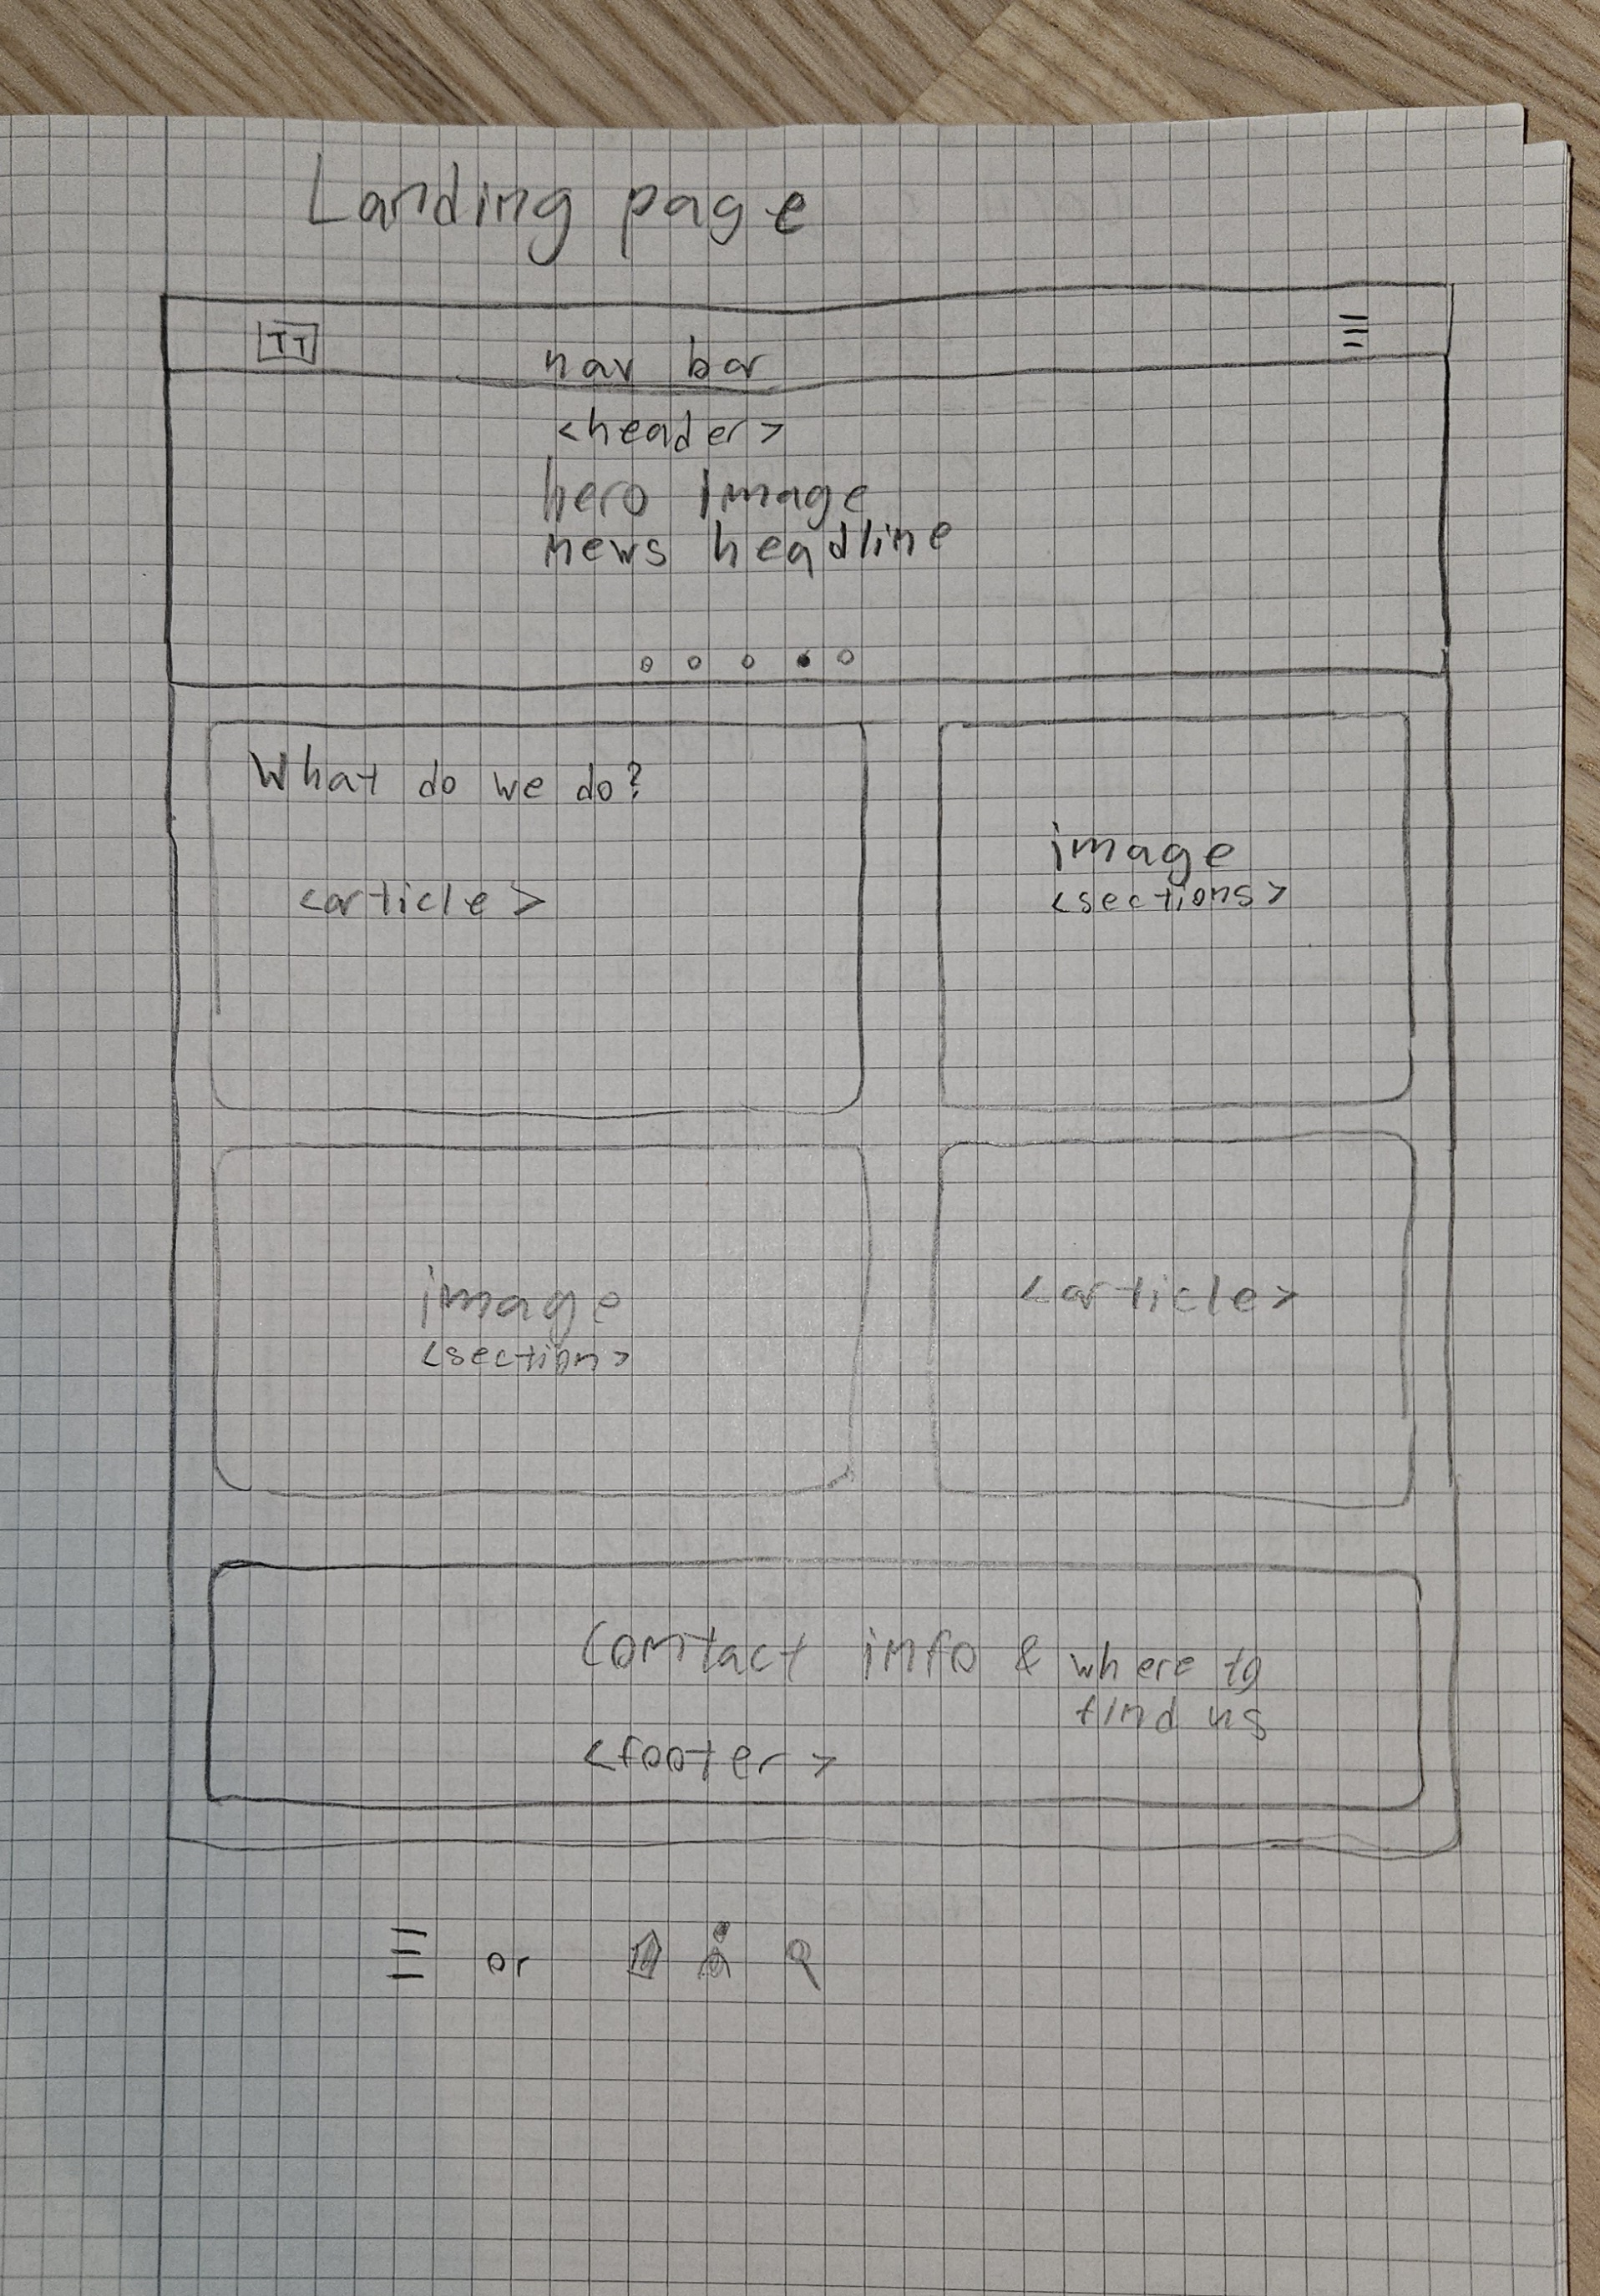 Landing page
TT
nav bar
<header>
hero image
news headline
What do we do?
<article>
image
<sections>
image
<section>
<article>
Contact info & where to
find us
<footer>
or